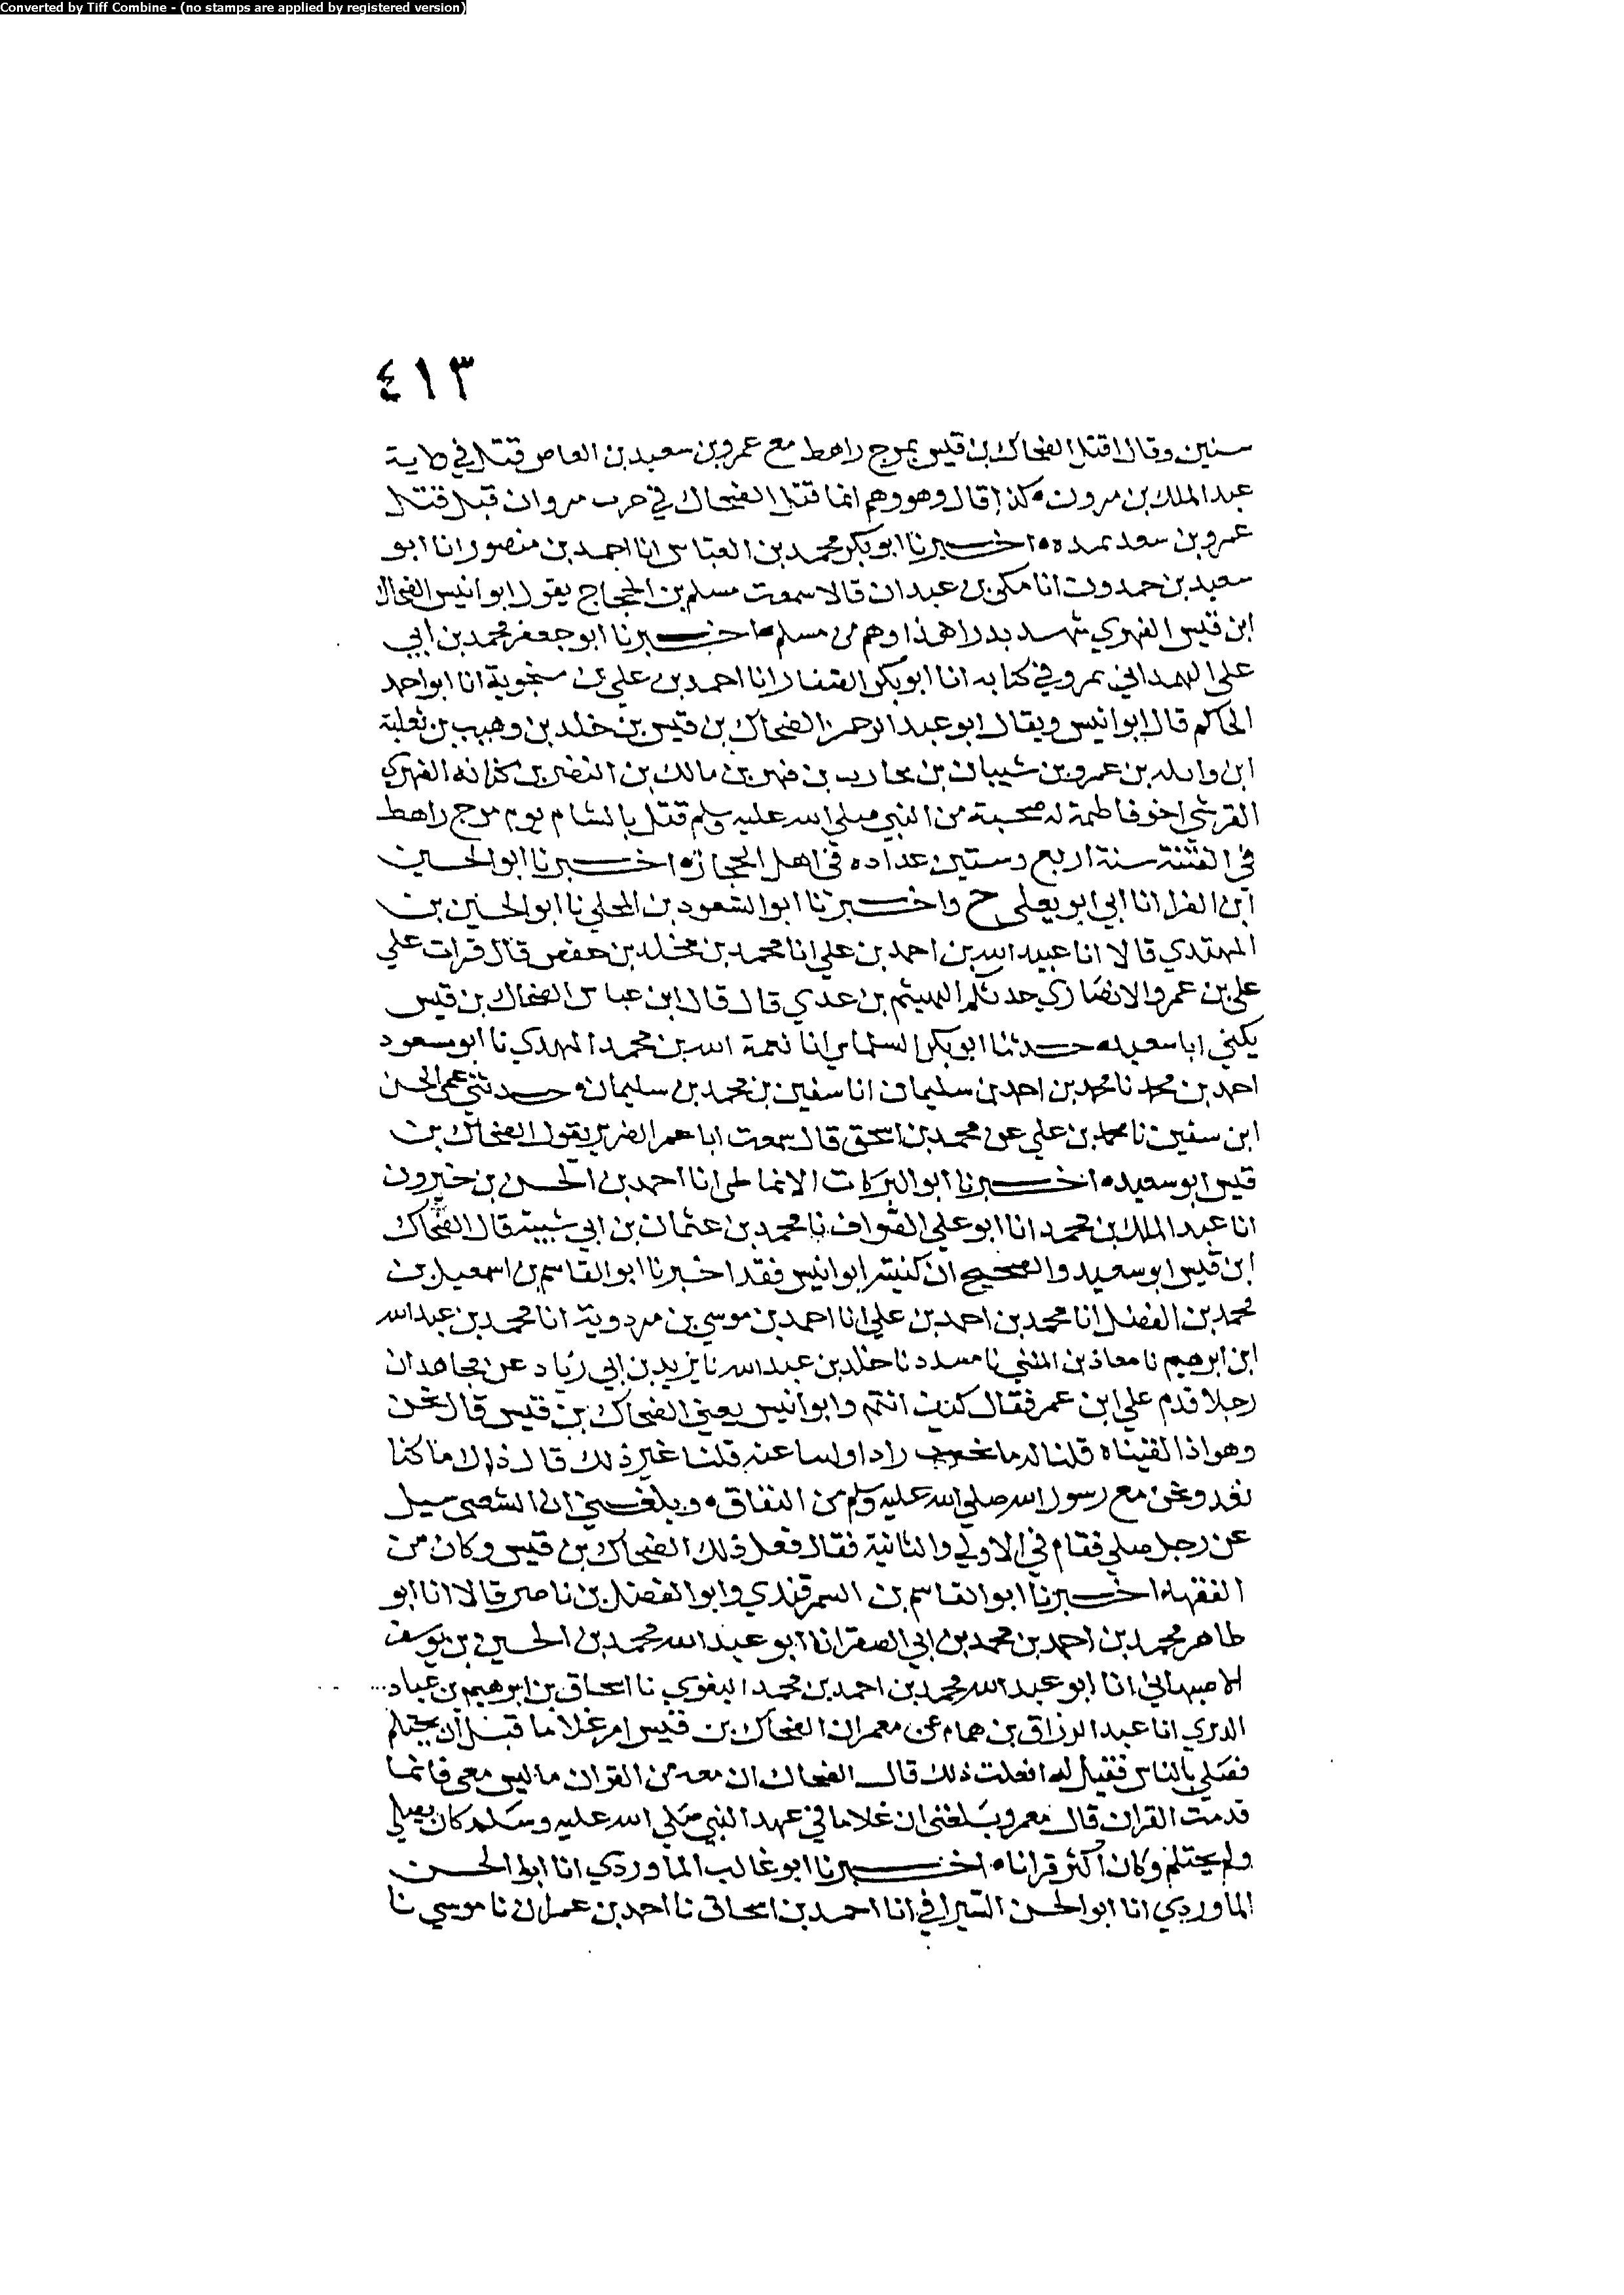 Converted by Tiff Combine - (no stamps are applied by registered version)
٤١٣
سنين وقال اقتل الضحاك بن قيس بمرج راهط مع عمرو بن سعيد بن العاص قتل في ولاية
عبد الملك بن مرون ه كذا قال وهو وهم انما قتل الضحاك في حرب مروان قبل قتل
عمرو بن سعد بمده ه اخبرنا ابو بكر محمد بن العباس انا احمد بن منصور انا ابو
سعيد بن حمدون انا مكي بن عبدان قالا سمعت مسلم بن الحجاج يقول ابو انيس الضحاك
ابن قيس الفهري شهد بدرا هذا وهم من مسلم ه اخبرنا ابو جعفر محمد بن ابي
علي الهمداني بمرو في كتابه انا ابو بكر الصفار انا احمد بن علي بن منجوية انا ابو احمد
الحاكم قال ابو انيس ويقال ابو عبد الرحمن الضحاك بن قيس بن خلد بن وهيب بن ثعلبة
ابن وايله بن عمرو بن شيبان بن محارب بن فهر بن مالك بن النضر بن كنانه الفهري
القرشي اخو فاطمة له صحبة من النبي صلى الله عليه وسلم قتل بالشام يوم مرج راهط
في الفتنة سنة اربع وستين عداده في اهل الحجاز ه اخبرنا ابو الحسين
ابن الفرا انا ابي ابو يعلى ح واخبرنا ابو السعود بن المجلي نا ابو الحسين بن
المهتدي قالا انا عبيد الله بن احمد بن علي انا محمد بن مخلد بن حفص قال قرات علي
علي بن عمرو الانصاري حدثكم الهيثم بن عدي قال قال ابن عباس الضحاك بن قيس
يكني ابا سعيد ه حدثنا ابو بكر السلماسي انا نعمة الله بن محمد المهدي نا ابو مسعود
احمد بن محمد نا محمد بن احمد بن سليمان انا سفين بن محمد بن سليمان ه حدثني عمي الحسن
ابن سفين نا محمد بن علي عن محمد بن اسحق قال سمعت ابا عمر الضرير يقول الضحاك بن
قيس ابو سعيد ه اخبرنا ابو البركات الانماطي انا احمد بن الحسن بن خيرون
انا عبد الملك بن محمد انا ابو علي الصواف نا محمد بن عثمان بن ابي شيبة قال الضحاك
ابن قيس ابو سعيد والصحيح ان كنيته ابو انيس فقد اخبرنا ابو القاسم بن اسمعيل بن
محمد بن الفضل انا محمد بن احمد بن علي انا احمد بن موسي بن مردوية انا محمد بن عبد الله
ابن ابرهيم نا معاذ بن المثني نا مسدد نا خلد بن عبد الله نا يزيد بن ابي زياد عن مجاهد ان
رجلا قدم علي ابن عمر فقال كيف انتم وابو انيس يعني الضحاك بن قيس قال نحن
وهو اذا لقيناه قلنا له ما يحب واذا ولينا عنه قلنا غير ذلك قال ذاك ما كنا
نعد ونحن مع رسول الله صلي الله عليه وسلم من النفاق ه وبلغني ان الشعبي سيل
عن رجل صلي فقام في الاولي والثانية فقال فعل ذلك الضحاك بن قيس وكان من
الفقهاء اخبرنا ابو القاسم بن السمرقندي وابو الفضل بن ناصر قالا انا ابو
طاهر محمد بن احمد بن محمد بن ابي الصقر انا ابو عبد الله محمد بن الحسين بن يوسف
الاصبهاني انا ابو عبد الله محمد بن احمد بن محمد البغوي نا اسحاق بن ابرهيم بن عباد
الدبري انا عبد الرزاق بن همام عن معمر ان الضحاك بن قيس امر غلاما قبل أن يحتلم
فصلي بالناس فقيل له افعلت ذلك قال الضحاك ان معه من القران ما ليس معي فانما
قدمت القران قال معمر وبلغني ان غلاما في عهد النبي صلى الله عليه وسلم كان يصلي
ولم يحتلم وكان أكثر قرانا ه اخبرنا ابو غالب الماوردي انا ابو الحسن
الماوردي انا ابو الحسن السيرافي انا احمد بن اسحاق نا احمد بن عمران نا موسي نا